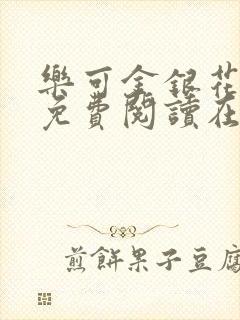 樂可金銀花
免費閱讀在
煎餅果子豆腐